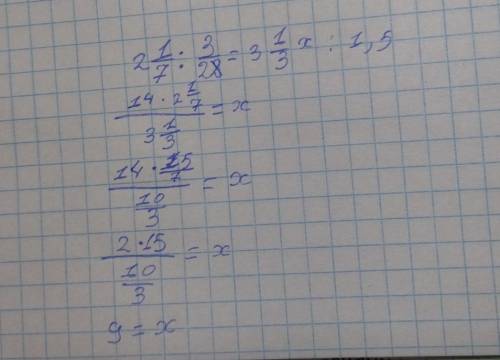 2 1/7 : 3/28 = 3 1/3 x : 1,5
(14 · 2 1/7) / (3 1/3) = x
(14 · 15/7) / (10/3) = x
(2 · 15) / (10/3) = x
9 = x